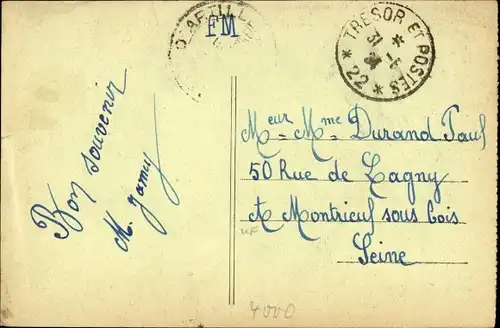 D'ARTILLE
FM
* TRESOR ET POSTES *
31
22 *
Bon souvenir
M.
Meur = Mme Durand Paul
50 Rue de Lagny
A Montrieuf sous bois
Seine
4000